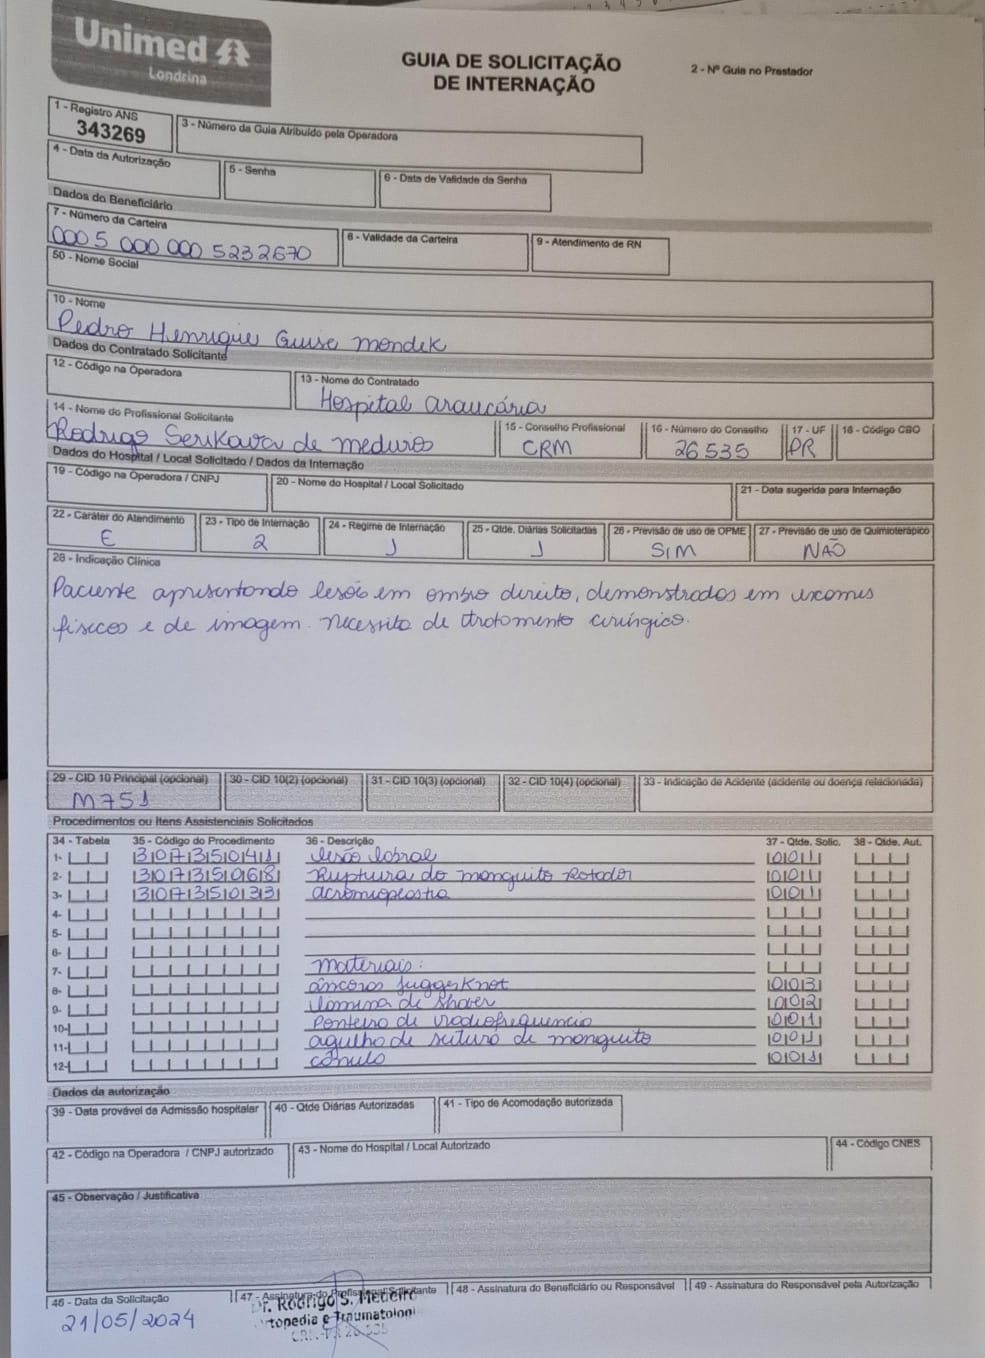 Unimed
Londrina
GUIA DE SOLICITAÇÃO
DE INTERNAÇÃO
2 - Nº Guia no Prestador
1 - Registro ANS
343269
3 - Número da Guia Atribuído pela Operadora
4 - Data da Autorização
5 - Senha
6 - Data de Validade da Senha
Dados do Beneficiário
7 - Número da Carteira
0005 000 000 5232670
8 - Validade da Carteira
9 - Atendimento de RN
50 - Nome Social
10 - Nome
Pedro Henrique Guise Mondek
Dados do Contratado Solicitante
12 - Código na Operadora
13 - Nome do Contratado
Hospital Araucária
14 - Nome do Profissional Solicitante
Rodrigo Serikawa de Medeiros
15 - Conselho Profissional
CRM
16 - Número do Conselho
26535
17 - UF
PR
18 - Código CBO
Dados do Hospital / Local Solicitado / Dados da Internação
19 - Código na Operadora / CNPJ
20 - Nome do Hospital / Local Solicitado
21 - Data sugerida para Internação
22 - Caráter do Atendimento
E
23 - Tipo de Internação
2
24 - Regime de Internação
1
25 - Qtde. Diárias Solicitadas
1
26 - Previsão de uso de OPME
SIM
27 - Previsão de uso de Quimioterápico
NÃO
28 - Indicação Clínica
Paciente apresentando lesões em ombro direito, demonstrados em exames
físicos e de imagem. Necessita de tratamento cirúrgico.
29 - CID 10 Principal (opcional)
M751
30 - CID 10(2) (opcional)
31 - CID 10(3) (opcional)
32 - CID 10(4) (opcional)
33 - Indicação de Acidente (acidente ou doença relacionada)
Procedimentos ou Itens Assistenciais Solicitados
34 - Tabela 35 - Código do Procedimento 36 - Descrição 37 - Qtde. Solic. 38 - Qtde. Aut.
1- 30735041 lesão labral 001
2- 30735068 Ruptura do manguito Rotador 001
3- 30735033 acromioplastia 001
4-
5-
6-
7- materiais:
8- âncoras JuggerKnot 003
9- lâmina de Shaver 002
10- Ponteira de radiofrequencia 001
11- agulha de sutura de manguito 001
12- cânula 001
Dados da autorização
39 - Data provável da Admissão hospitalar
40 - Qtde Diárias Autorizadas
41 - Tipo de Acomodação autorizada
42 - Código na Operadora / CNPJ autorizado
43 - Nome do Hospital / Local Autorizado
44 - Código CNES
45 - Observação / Justificativa
46 - Data da Solicitação
21/05/2024
47 - Assinatura do Profissional Solicitante
Dr. Rodrigo S. Medeiro
rtopedia e Traumatologi
CRM-PR 26.535
48 - Assinatura do Beneficiário ou Responsável
49 - Assinatura do Responsável pela Autorização